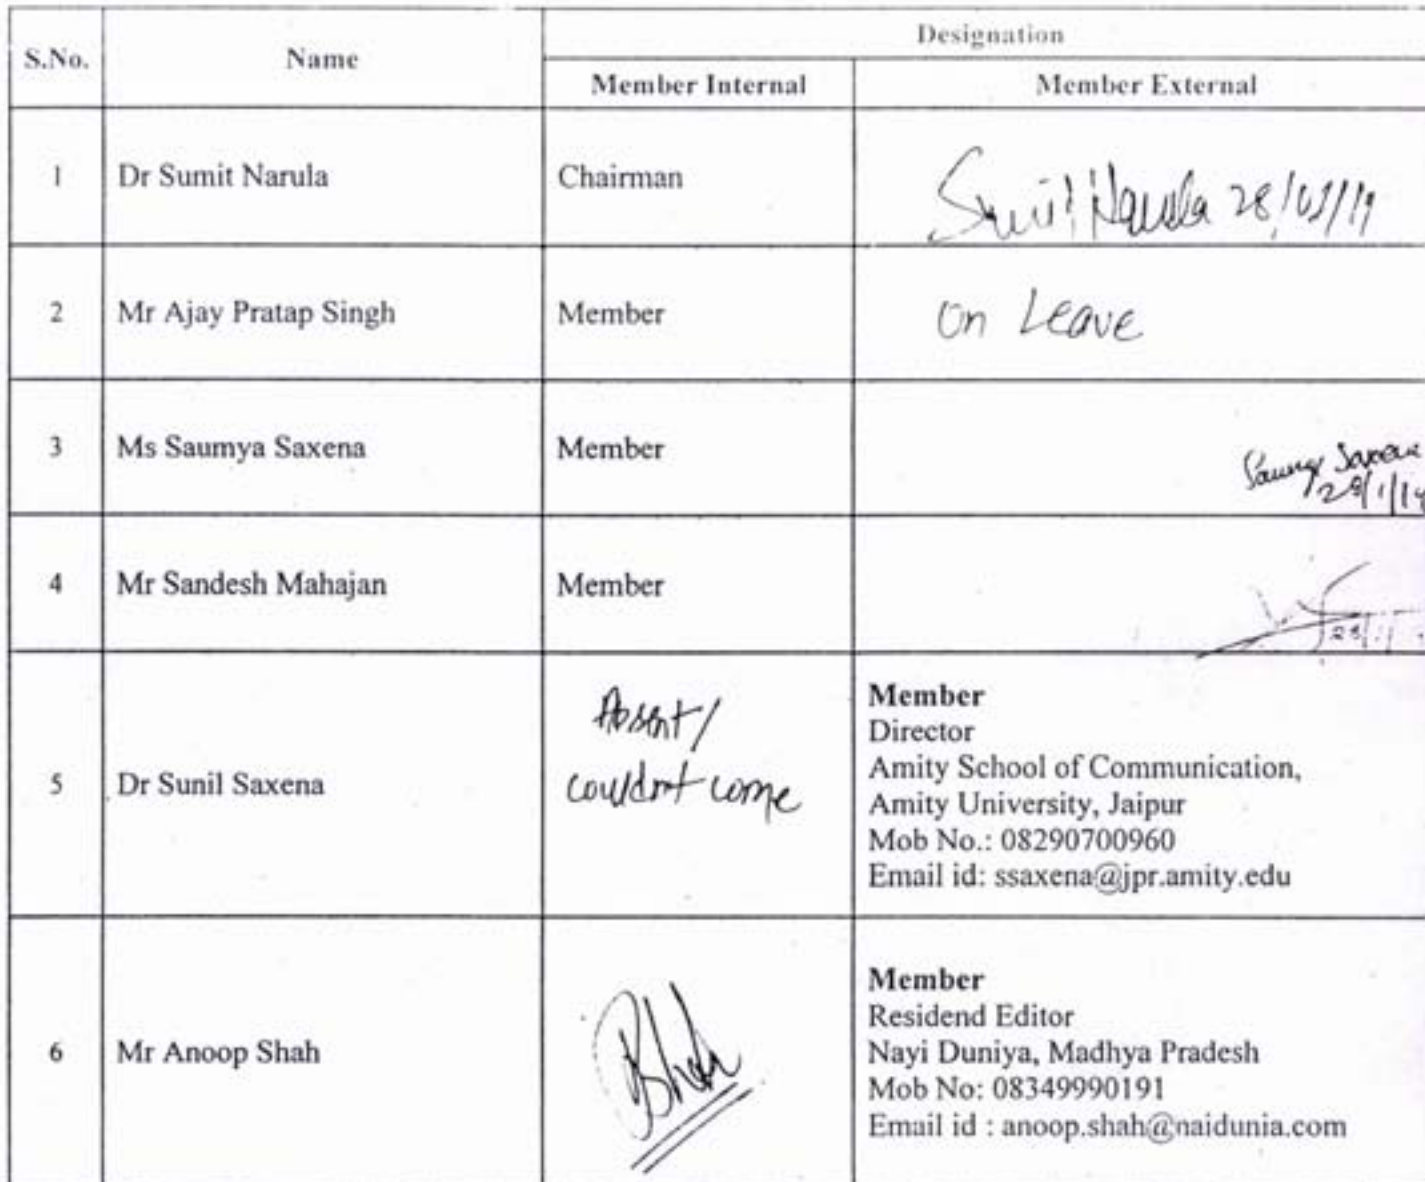 S.No.
Name
Designation
Member Internal
Member External
1
Dr Sumit Narula
Chairman
Sumit Narula 28/01/19
2
Mr Ajay Pratap Singh
Member
On Leave
3
Ms Saumya Saxena
Member
Saumya Saxena
28/1/19
4
Mr Sandesh Mahajan
Member
5
Dr Sunil Saxena
Absent /
couldnt come
Member
Director
Amity School of Communication,
Amity University, Jaipur
Mob No.: 08290700960
Email id: ssaxena@jpr.amity.edu
6
Mr Anoop Shah
Member
Residend Editor
Nayi Duniya, Madhya Pradesh
Mob No: 08349990191
Email id : anoop.shah@naidunia.com